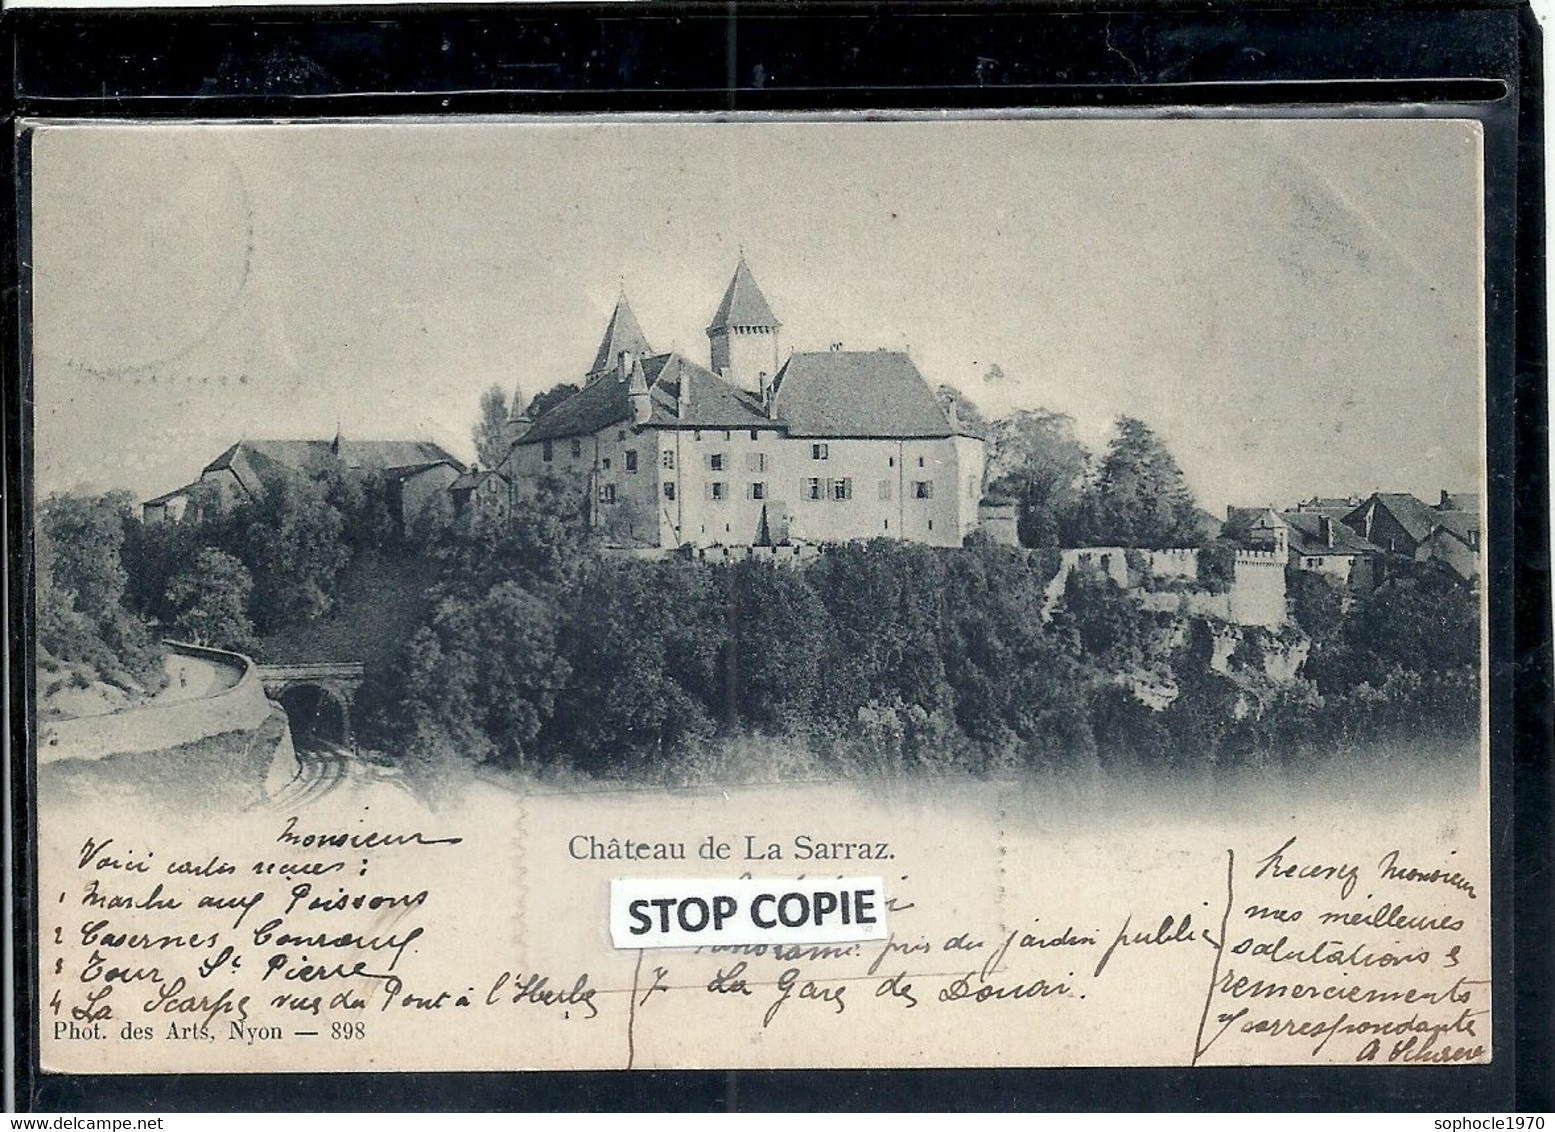 Château de La Sarraz.
STOP COPIE
Monsieur
Voici cartes recues :
1 Marche aux Poissons
2 Casernes
3 Tour St Pierre
4 La Scarpe vue du Pont à l'Herbe
pris du jardin public
7 La Gare de Douai.
Phot. des Arts, Nyon — 898
Recevez Monsieur
mes meilleures
salutations &
remerciements
correspondante
sophocle1970